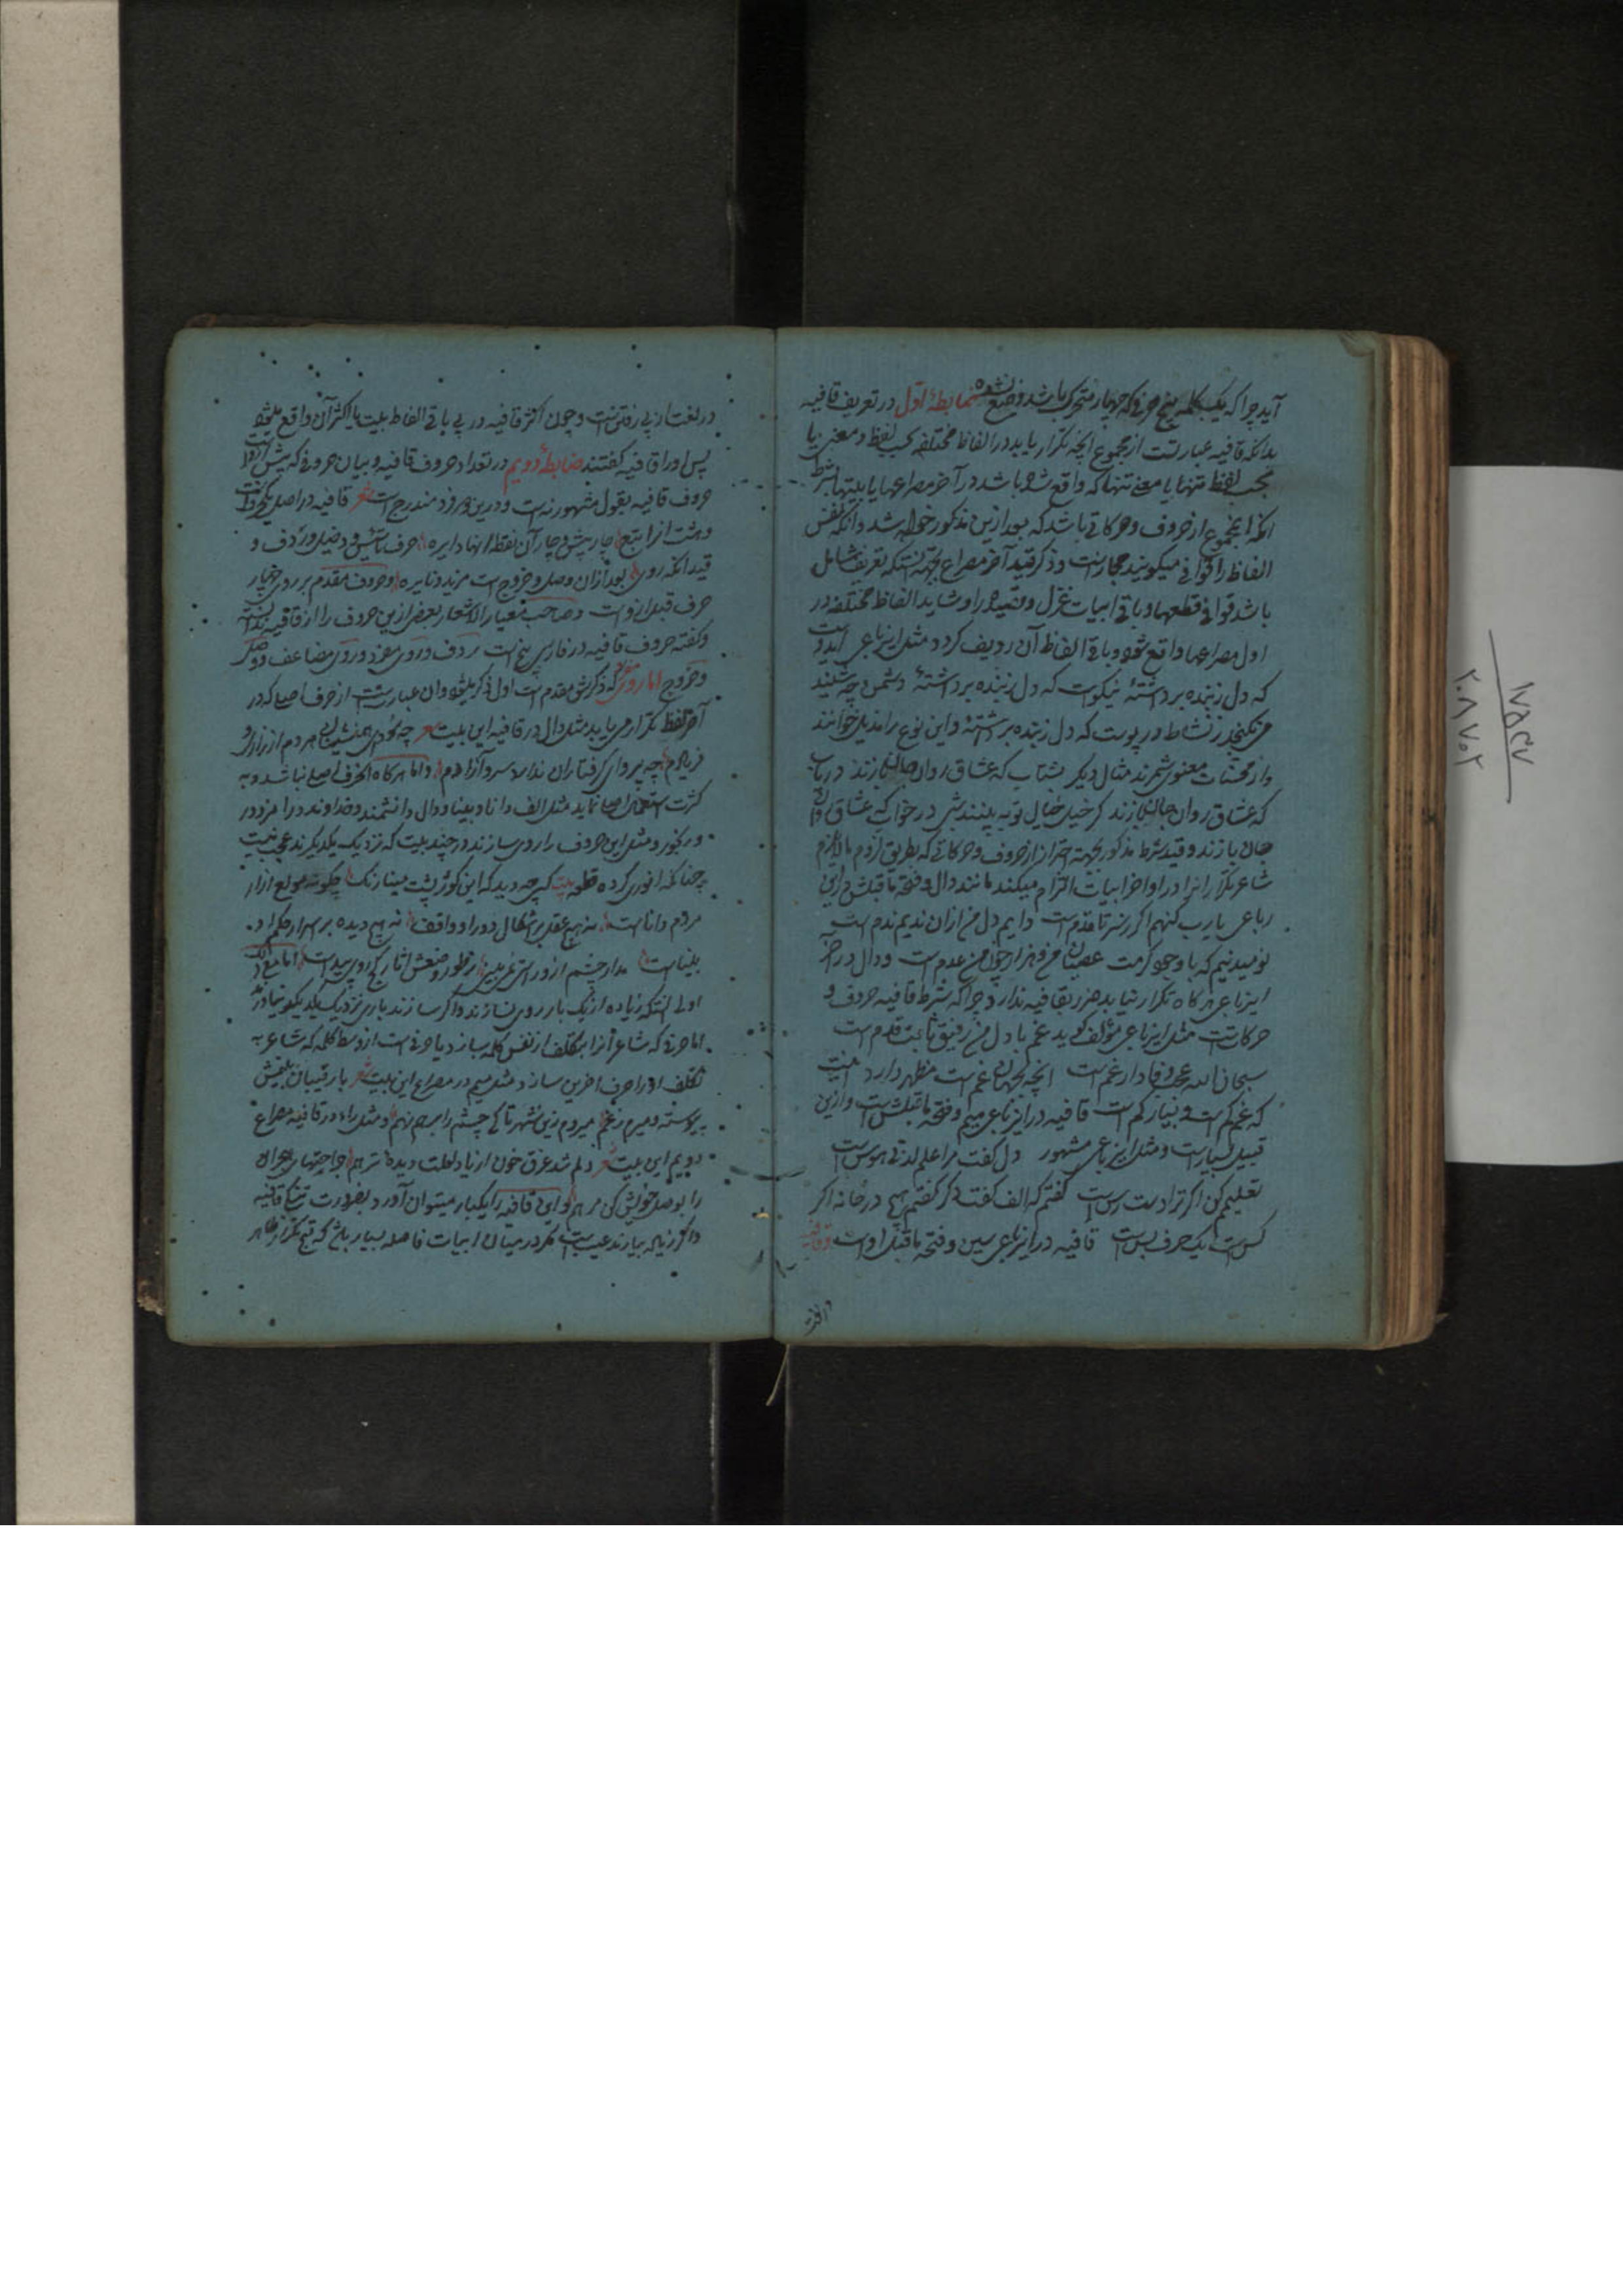 آید چرا که یک کلمه پنج حرفی که چهار متحرک باشد وضع نشده ضابطهٔ اول در تعریف قافیه
بدانکه قافیه عبارتست از مجموع آنچه تکرار یابد در الفاظ مختلفه بحسب لفظ و معنی یا
بحسب لفظ تنها یا معنی تنها که واقع شده باشد در آخر مصراعها یا بیتها بشرط
آنکه این مجموع از حروف و حرکاتی باشد که بعد ازین مذکور خواهد شد و آنکه نفس
الفاظ را قوافی میگویند مجازست و ذکر قید آخر مصراع بجهة آنستکه تعریف شامل
باشد قوافی قطعها و باقی ابیات غزل و قصیده را و شاید الفاظ مختلفه در
اول مصراعها واقع شود و باقی الفاظ آن ردیف گردد مثل این رباعی ای دوست
که دل زبنده برداشتهٔ نیکوست که دل زبنده برداشتهٔ دشمن چو شنید
می نگنجد ز نشاط در پوست که دل زبنده برداشتهٔ و این نوع را خوانند
و از محسنات معنوی شمرند مثال دیگر بشتاب که عشاق روان جان بازند دریاب
که عشاق روان جان بازند گر خیل خیال تو به بینند شبی در خواب که عشاق روان
جان بازند و قید شرط مذکور بجهة احتراز از حروف و حرکاتی که بطریق لزوم مالایلزم
شاعر تکرار آنرا در اواخر ابیات التزام میکند مانند دال و فتحهٔ ماقبلش درین
رباعی یارب گنهم اگر ز سر تا قدم است دایم دل من ازان ندیم ندم است
نومید نیم که با وجود کرمت عصیان من و هزار چون من عدم است و دال در
این رباعی هر گاه تکرار نیابد ضرر بقافیه ندارد چرا که شرط قافیه حروف و
حرکاتست مثل این رباعی مؤلف گوید غم با دل من رفیق ثابت قدم است
سبحان الله عجب وفادار غم است آنچه بجهان غم است مظهر دارد
که غم کم است و بسیار کم است قافیه درین رباعی میم و فتحهٔ ماقبلش است و ازین
قبیل بسیارست و مثل این رباعی مشهور دل گفت مرا علم لدنی هوس است
تعلیمم کن اگر ترا دست رس است گفتم که الف گفت دگر گفتم هیچ در خانه اگر
کس است یک حرف بس است قافیه درین رباعی سین و فتحهٔ ماقبل اوست و قافیه
در لغت
در لغت از پی رفتن است و چون اکثر قافیه در پی باقی الفاظ بیت یا اکثر آن واقع میشود
پس او را قافیه گفتند ضابطهٔ دویم در تعداد حروف قافیه و بیان حروفی که پیش است
حروف قافیه بقول مشهور نه است و درین دو فرد مندرج است شعر قافیه در اصل یکحرفست
و هشت آنرا تبع چار پیش و چار پس آن نقطه اینها دایره حرف تأسیس و دخیل و ردف و
قید آنکه روی بعد ازان وصل و خروج است مزید و نایره و حروف مقدم بر روی چهار
حرف قبل از اوست و صاحب معیار الاشعار بعضی ازین حروف را از قافیه ندانسته
و گفته حروف قافیه در فارسی پنج است ردف و روی مفرد و روی مضاعف و وصل
و خروج اما روی که ذکرش مقدم است اول ذکر میشود و آن عبارتست از حرف اصلی که در
آخر لفظ تکرار می یابد مثل دال در قافیه این بیت شعر
فریادم چه پروای گرفتاران ندارد سرو آزادم و اما هر گاه آنحرف اصلی نباشد و به
کثرت استعمال اصلی نماید مثل الف دانا و بینا و دال دانشمند و خداوند و را مزدور
و رنجور و مثل این حروف را روی سازند و در چند بیت که نزدیک یکدیگرند عیب نیست
چنانکه انوری کرده قطعه بیت کسی چه دید که این کوژپشت مینا رنگ چگونه مولع آزار
مردم داناست نه هیچ عقل بر اشکال دور او واقف نه هیچ دیده بر اسرار حکم او
بیناست اما مع ذلک
اولی آنستکه زیاده از یک بار روی نسازند و اگر سازند باری نزدیک یکدیگر نیاورند
اما حرفی که شاعر آنرا بتکلف از نفس کلمه سازد یا حرفی است از وسط کلمه که شاعر به
تکلف او را حرف آخرین سازد مثل میم در مصراع این بیت شعر با رقیبان بینمش
پیوسته و میرم ز غم میروم زین شهر تا کی چشم را بر هم نهم و مثل راء در قافیه مصراع
دویم این بیت شعر دلم شد غرق خون از یاد لعلت دیده تر هم جراحتهای هجران
را بوصل خویش کن مرهم و این قافیه را یکبار میتوان آورد بضرورت تنگی قافیه
و اگر زیاده بیارند عیب است مگر در میان ابیات فاصله بسیار باشد که قبح تکرار ظاهر
۱۷۵۴۷
۲۰۸۷۰۲